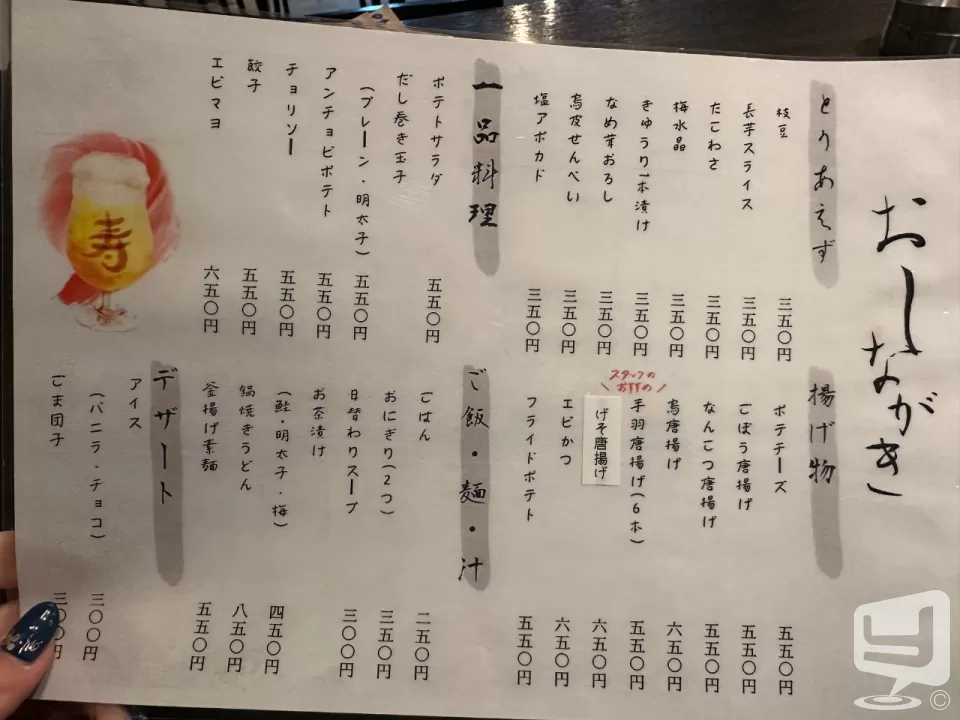 おしながき
とりあえず
枝豆 三五〇円
長芋スライス 三五〇円
たこわさ 三五〇円
梅水晶 三五〇円
きゅうり1本漬け 三五〇円
なめ茸おろし 三五〇円
鳥皮せんべい 三五〇円
塩アボカド 三五〇円
一品料理
ポテトサラダ 五五〇円
だし巻き玉子
(プレーン・明太子) 五五〇円
アンチョビポテト 五五〇円
チョリソー 五五〇円
餃子 五五〇円
エビマヨ 六五〇円
寿
揚げ物
ポテチーズ 五五〇円
ごぼう唐揚げ 五五〇円
なんこつ唐揚げ 五五〇円
鳥唐揚げ 六五〇円
スタッフの
おすすめ
手羽唐揚げ(6本) 五五〇円
げそ唐揚げ 六五〇円
エビかつ 六五〇円
フライドポテト 五五〇円
ご飯・麺・汁
ごはん 二五〇円
おにぎり(2つ) 三五〇円
日替わりスープ 三〇〇円
お茶漬け
(鮭・明太子・梅) 四五〇円
鍋焼きうどん 八五〇円
釜揚げ素麺 五五〇円
デザート
アイス
(バニラ・チョコ) 三〇〇円
ごま団子 三〇〇円